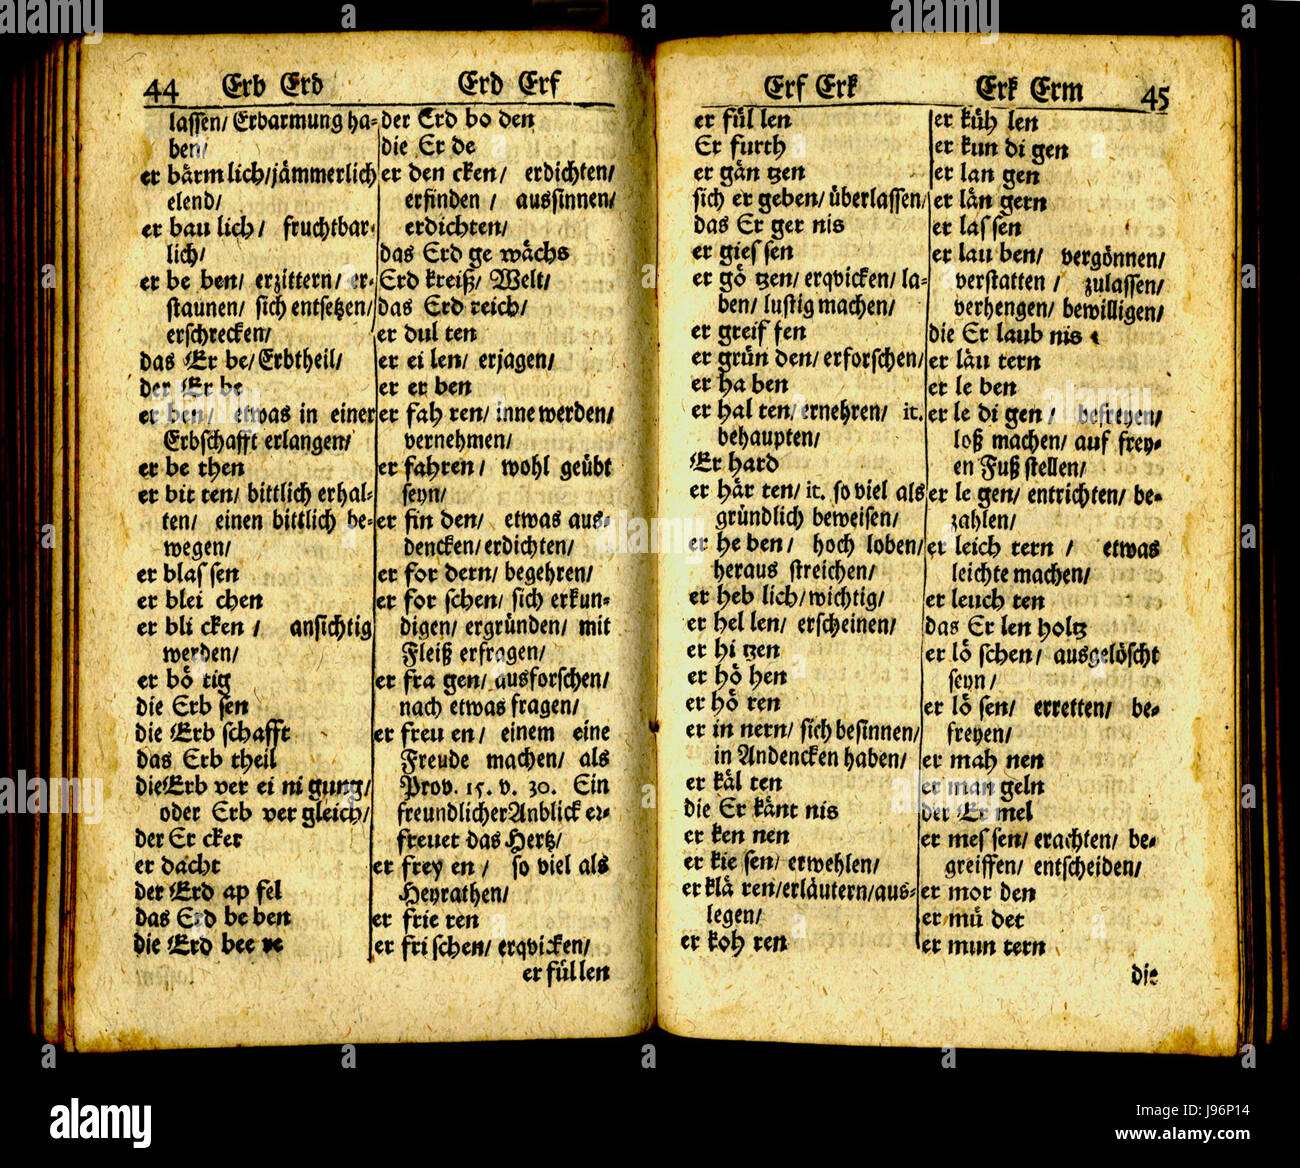 44 Erb Erd
Erd Erf
lassen/ Erbarmung ha⸗
ben/
er bärm lich/jämmerlich
elend/
er bau lich/ fruchtbar⸗
lich/
er be ben/ erzittern/ er⸗
staunen/ sich entsetzen/
erschrecken/
das Er be/Erbtheil/
der Er be
er ben/ etwas in einer
Erbschafft erlangen/
er be then
er bit ten/ bittlich erhal⸗
ten/ einen bittlich be⸗
wegen/
er blas sen
er blei chen
er bli cken/ ansichtig
werden/
er bö tig
die Erb sen
die Erb schafft
das Erb theil
die Erb ver ei ni gung/
oder Erb ver gleich/
der Er cker
er dacht
der Erd ap fel
das Erd be ben
die Erd bee re
der Erd bo den
die Er de
er den cken/ erdichten/
erfinden/ aussinnen/
erdichten/
das Erd ge wächs
Erd kreiß/ Welt/
das Erd reich/
er dul ten
er ei len/ erjagen/
er er ben
er fah ren/ inne werden/
vernehmen/
er fahren/ wohl geübt
seyn/
er fin den/ etwas aus⸗
dencken/erdichten/
er for dern/ begehren/
er for schen/ sich erkun⸗
digen/ ergründen/ mit
Fleiß erfragen/
er fra gen/ ausforschen/
nach etwas fragen/
er freu en/ einem eine
Freude machen/ als
Prov. 15. v. 30. Ein
freundlicher Anblick er⸗
freuet das Hertz/
er frey en/ so viel als
Heyrathen/
er frie ren
er fri schen/ erqvicken/
er fül len
Erf Erk
Erk Erm 45
er fül len
Er furth
er gän tzen
sich er geben/ überlassen/
das Er ger nis
er gies sen
er gö tzen/ erqvicken/ la⸗
ben/ lustig machen/
er greif fen
er grün den/ erforschen/
er ha ben
er hal ten/ ernehren/ it.
behaupten/
Er hard
er här ten/ it. so viel als
gründlich beweisen/
er he ben/ hoch loben/
heraus streichen/
er heb lich/wichtig/
er hel len/ erscheinen/
er hi tzen
er hö hen
er hö ren
er in nern/ sich besinnen/
in Andencken haben/
er käl ten
die Er känt nis
er ken nen
er kie sen/ erwehlen/
er klä ren/erläutern/aus⸗
legen/
er koh ren
er küh len
er kun di gen
er lan gen
er län gern
er las sen
er lau ben/ vergönnen/
verstatten/ zulassen/
verhengen/ bewilligen/
die Er laub nis
er läu tern
er le ben
er le di gen/ befreyen/
loß machen/ auf frey⸗
en Fuß stellen/
er le gen/ entrichten/ be⸗
zahlen/
er leich tern/ etwas
leichte machen/
er leuch ten
das Er len holtz
er lö schen/ ausgelöscht
seyn/
er lö sen/ erretten/ be⸗
freyen/
er mah nen
er man geln
der Er mel
er mes sen/ erachten/ be⸗
greiffen/ entscheiden/
er mor den
er mü det
er mun tern
die
alamy
Image ID: J96P14
www.alamy.com